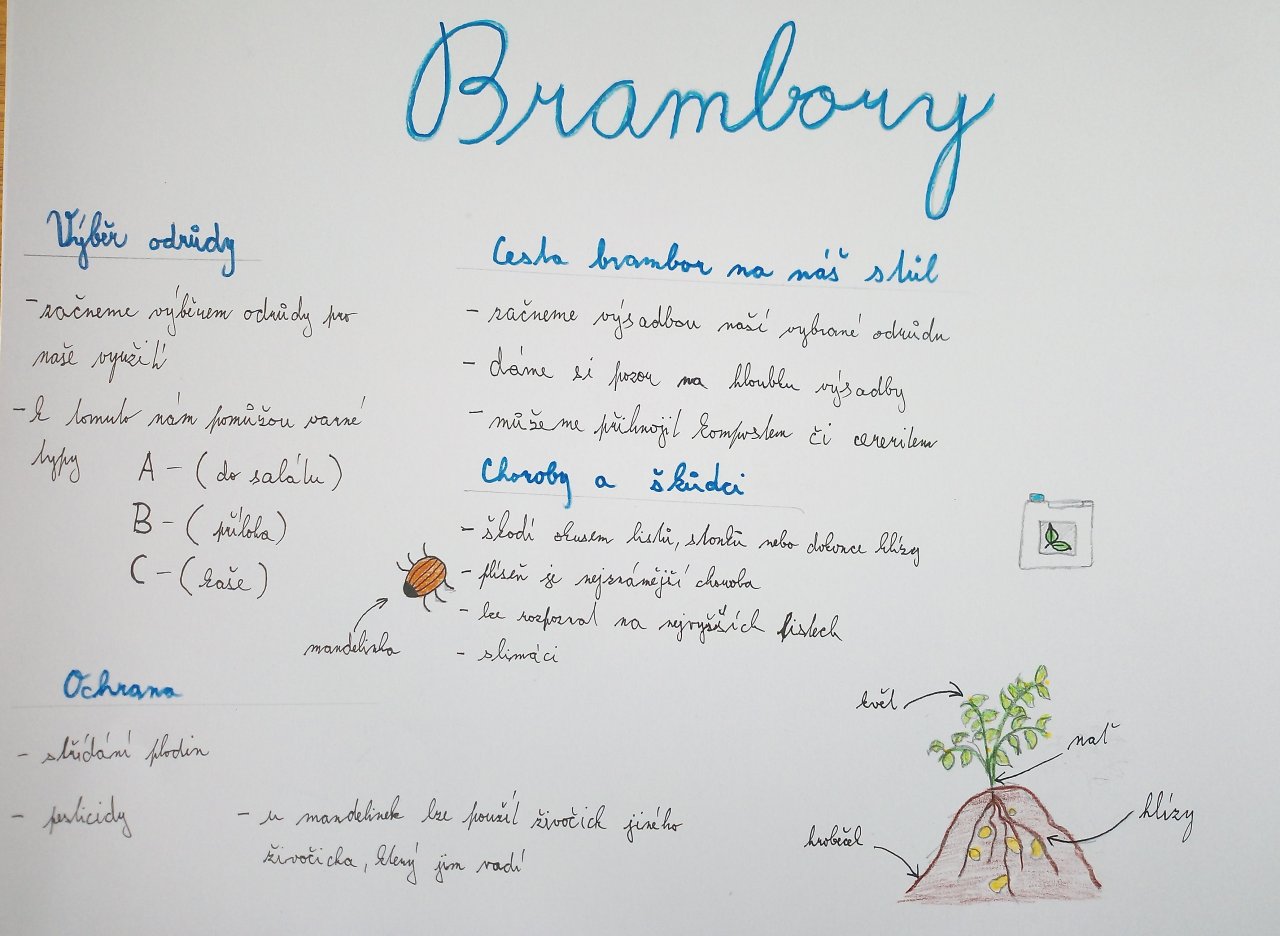 Brambory
Výběr odrůdy
- začneme výběrem odrůdy pro
naše využití
- k tomuto nám pomůžou varné
typy
A - (do salátu)
B - (příloha)
C - (kaše)
Cesta brambor na náš stůl
- začneme výsadbou naší vybrané odrůdu
- dáme si pozor na hloubku výsadby
- můžeme přihnojit kompostem či cereritem
Choroby a škůdci
- škodí okusem listů, stonků nebo dokonce hlízy
- plíseň je nejznámější choroba
- lze rozpoznat na nejvyšších listech
- slimáci
mandelinka
Ochrana
- střídání plodin
- pesticidy
- u mandelinek lze použít živočich jiného
živočicha, který jim vadí
květ
nať
hlízy
hrobčel